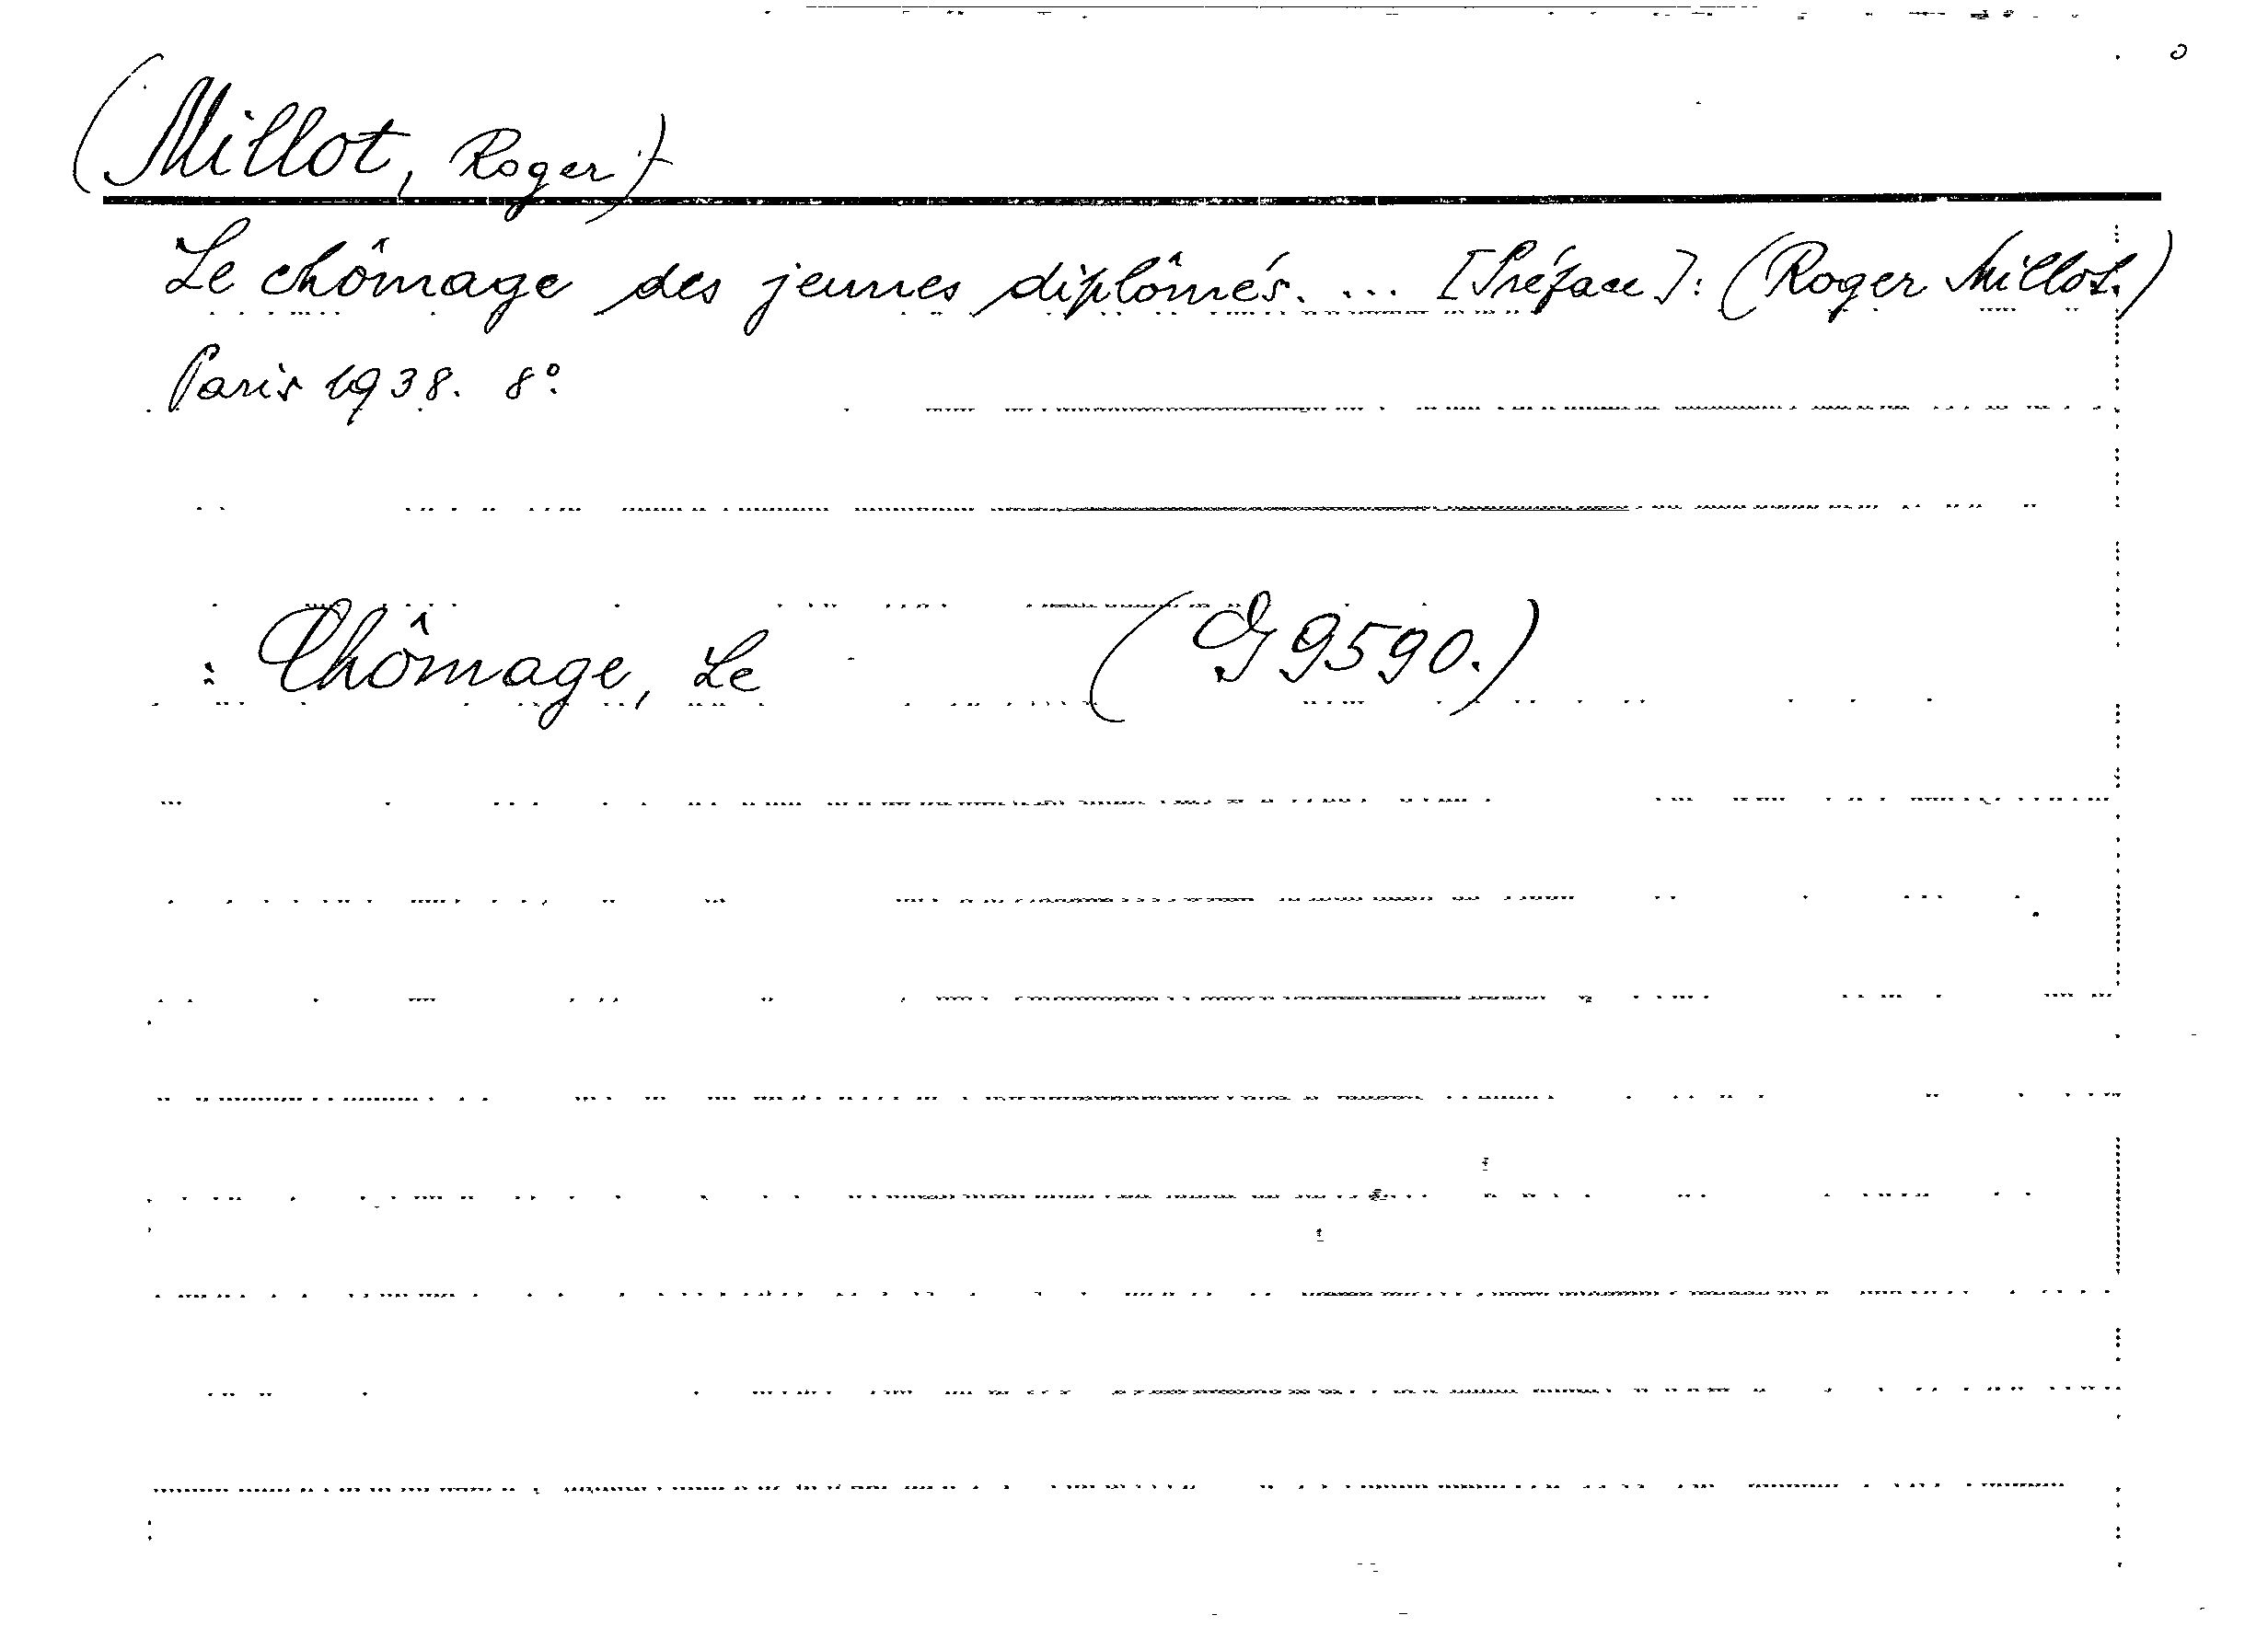 (Millot, Roger)
Le chômage des jeunes diplômés. ... [Préface]: (Roger Millot.)
Paris 1938. 8°.
: Chômage, Le (G 9590.)